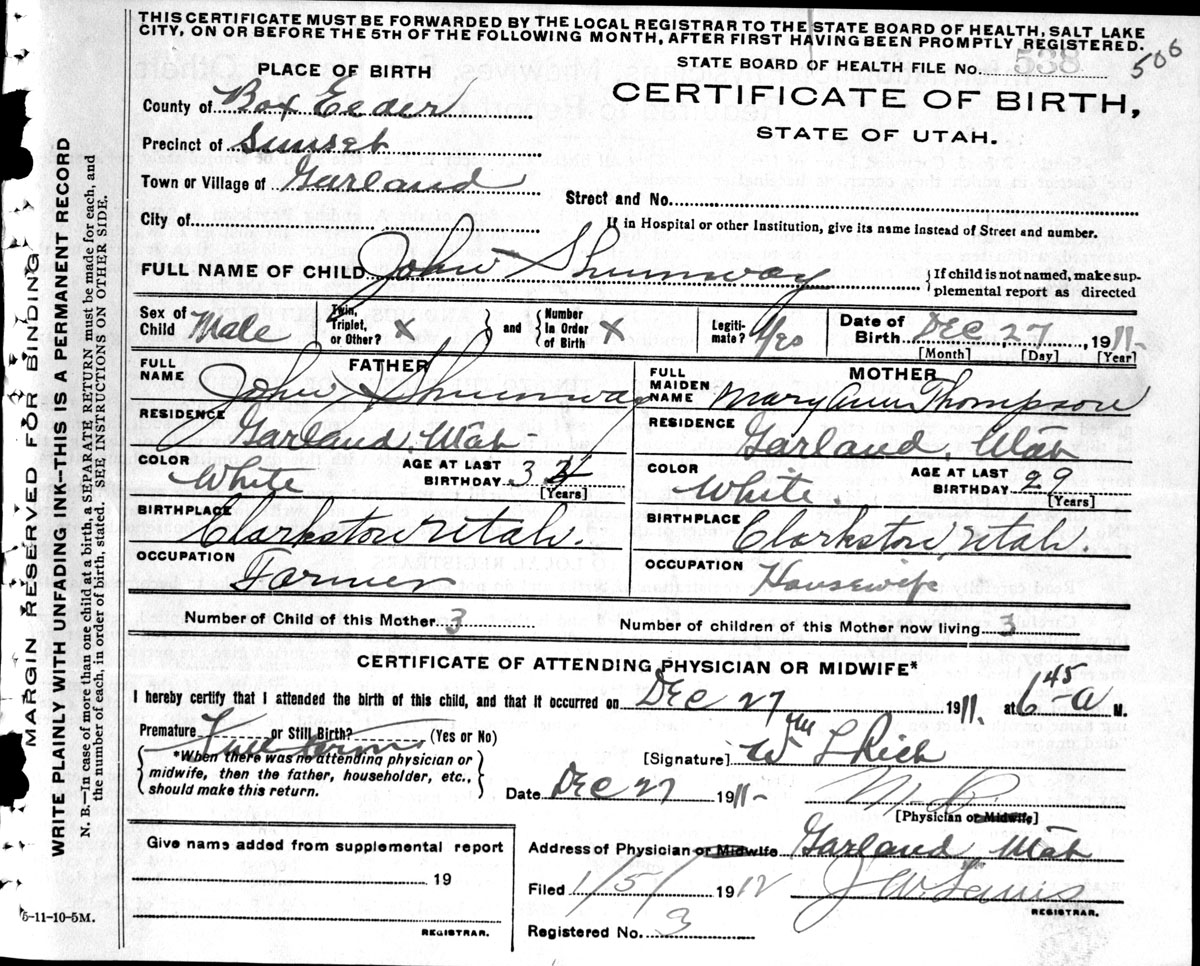 THIS CERTIFICATE MUST BE FORWARDED BY THE LOCAL REGISTRAR TO THE STATE BOARD OF HEALTH, SALT LAKE
CITY, ON OR BEFORE THE 5TH OF THE FOLLOWING MONTH, AFTER FIRST HAVING BEEN PROMPTLY REGISTERED.
PLACE OF BIRTH
STATE BOARD OF HEALTH FILE No. 538 506
County of Box Elder
CERTIFICATE OF BIRTH,
STATE OF UTAH.
Precinct of Sunset
Town or Village of Garland
Street and No.
City of
If in Hospital or other Institution, give its name instead of Street and number.
FULL NAME OF CHILD John Shumway
If child is not named, make sup-
plemental report as directed
Sex of Child Male
Twin, Triplet, or Other? x
and
Number In Order of Birth x
Legiti-mate? Yes
Date of Birth Dec 27, 1911-
[Month] [Day] [Year]
FATHER
FULL NAME John Shumway
RESIDENCE Garland, Utah
COLOR White
AGE AT LAST BIRTHDAY 3
[Years]
BIRTHPLACE Clarkston Utah.
OCCUPATION Farmer
MOTHER
FULL MAIDEN NAME Mary Ann Thompson
RESIDENCE Garland, Utah
COLOR White.
AGE AT LAST BIRTHDAY 29
[Years]
BIRTHPLACE Clarkston, Utah.
OCCUPATION Housewife
Number of Child of this Mother 3
Number of children of this Mother now living 3
CERTIFICATE OF ATTENDING PHYSICIAN OR MIDWIFE*
I hereby certify that I attended the birth of this child, and that it occurred on Dec 27 1911. at 6 45 a M.
Premature or Still Birth? (Yes or No)
*When there was no attending physician or
midwife, then the father, householder, etc.,
should make this return.
[Signature] Wm L Rich
Date Dec 27 1911-
M.D.
[Physician or Midwife]
Give name added from supplemental report
19
REGISTRAR.
Address of Physician or Midwife Garland Utah
Filed 1/5/ 1912
J W
REGISTRAR.
Registered No. 3
MARGIN RESERVED FOR BINDING
WRITE PLAINLY WITH UNFADING INK—THIS IS A PERMANENT RECORD
N. B.—In case of more than one child at a birth, a SEPARATE RETURN must be made for each, and
the number of each, in order of birth, stated. SEE INSTRUCTIONS ON OTHER SIDE.
5-11-10-5M.